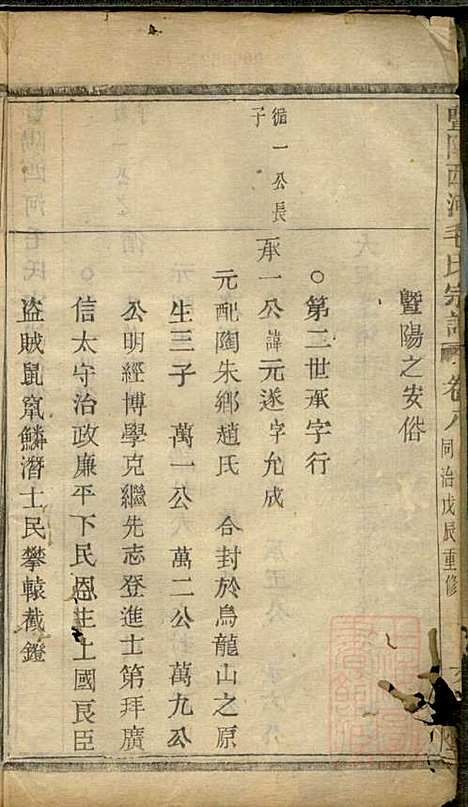 暨陽西河毛氏宗譜 卷八 同治戊辰重修
暨陽之安俗
○第二世承字行
循一公長子
承一公諱元遂字允成
元配陶朱鄉趙氏 合封於烏龍山之原
生三子 萬一公 萬二公 萬九公
公明經博學克繼先志登進士第拜廣
信太守治政廉平下民恩生土國良臣
盜賊鼠竄鱗潛士民攀轅截鐙